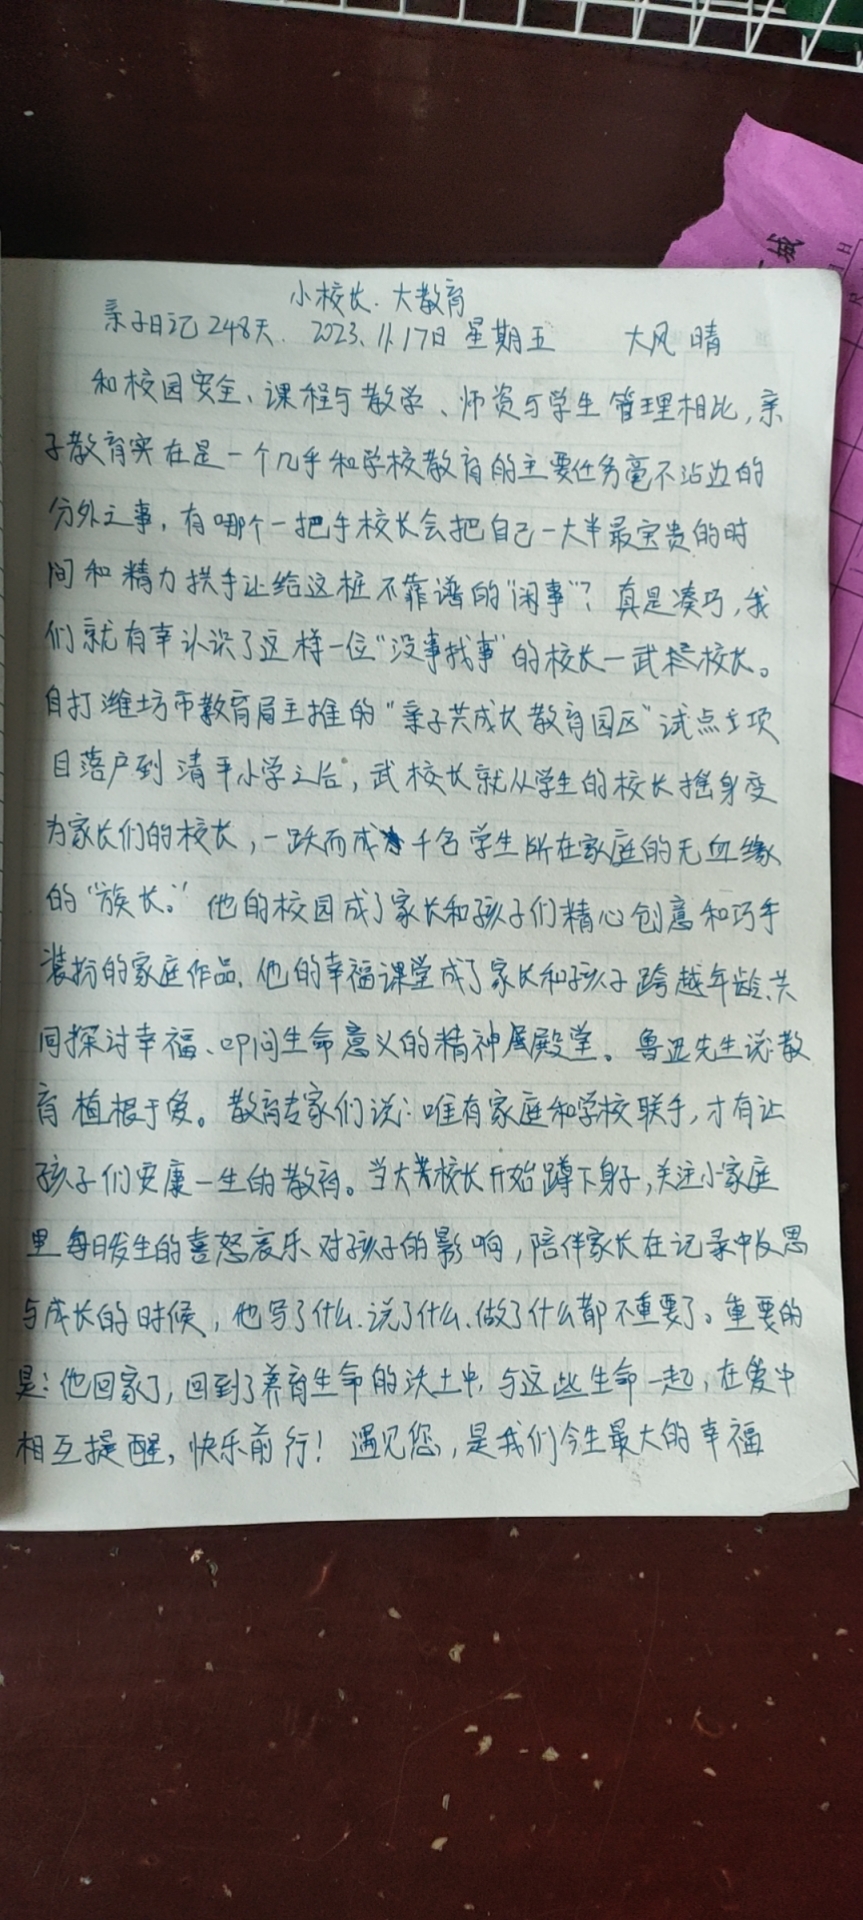 小校长.大教育
亲子日记248天. 2023.11.17日 星期五 大风 晴
和校园安全、课程与教学、师资与学生管理相比,亲
子教育实在是一个几乎和学校教育的主要任务毫不沾边的
分外之事,有哪个一把手校长会把自己一大半最宝贵的时
间和精力拱手让给这桩不靠谱的"闲事"?真是凑巧,我
们就有幸认识了这样一位"没事找事"的校长一武校长。
自打潍坊市教育局主推的"亲子共成长教育园区"试点专项
目落户到清平小学之后,武校长就从学生的校长摇身变
为家长们的校长,一跃而成千名学生所在家庭的无血缘
的"族长。"他的校园成了家长和孩子们精心创意和巧手
装扮的家庭作品.他的幸福课堂成了家长和孩子跨越年龄.共
同探讨幸福、叩问生命意义的精神殿堂。鲁迅先生说:教
育植根于爱。教育专家们说:唯有家庭和学校联手,才有让
孩子们安康一生的教育。当大校长开始蹲下身子,关注小家庭
里每日发生的喜怒哀乐对孩子的影响,陪伴家长在记录中反思
与成长的时候,他写了什么.说了什么.做了什么都不重要了。重要的
是:他回家了,回到了养育生命的沃土中,与这些生命一起,在爱中
相互提醒,快乐前行!遇见您,是我们今生最大的幸福